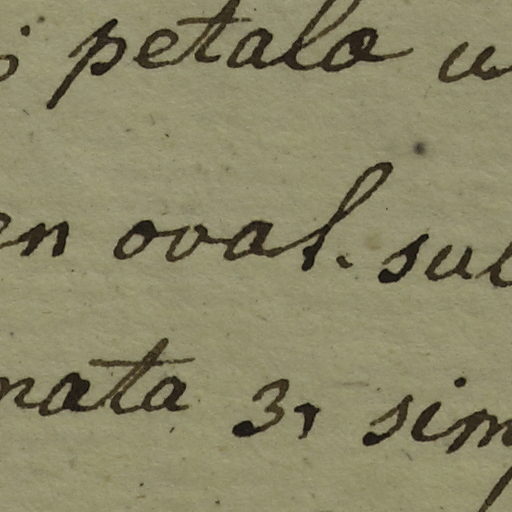 petala
en oval. sul
nata 3, sim